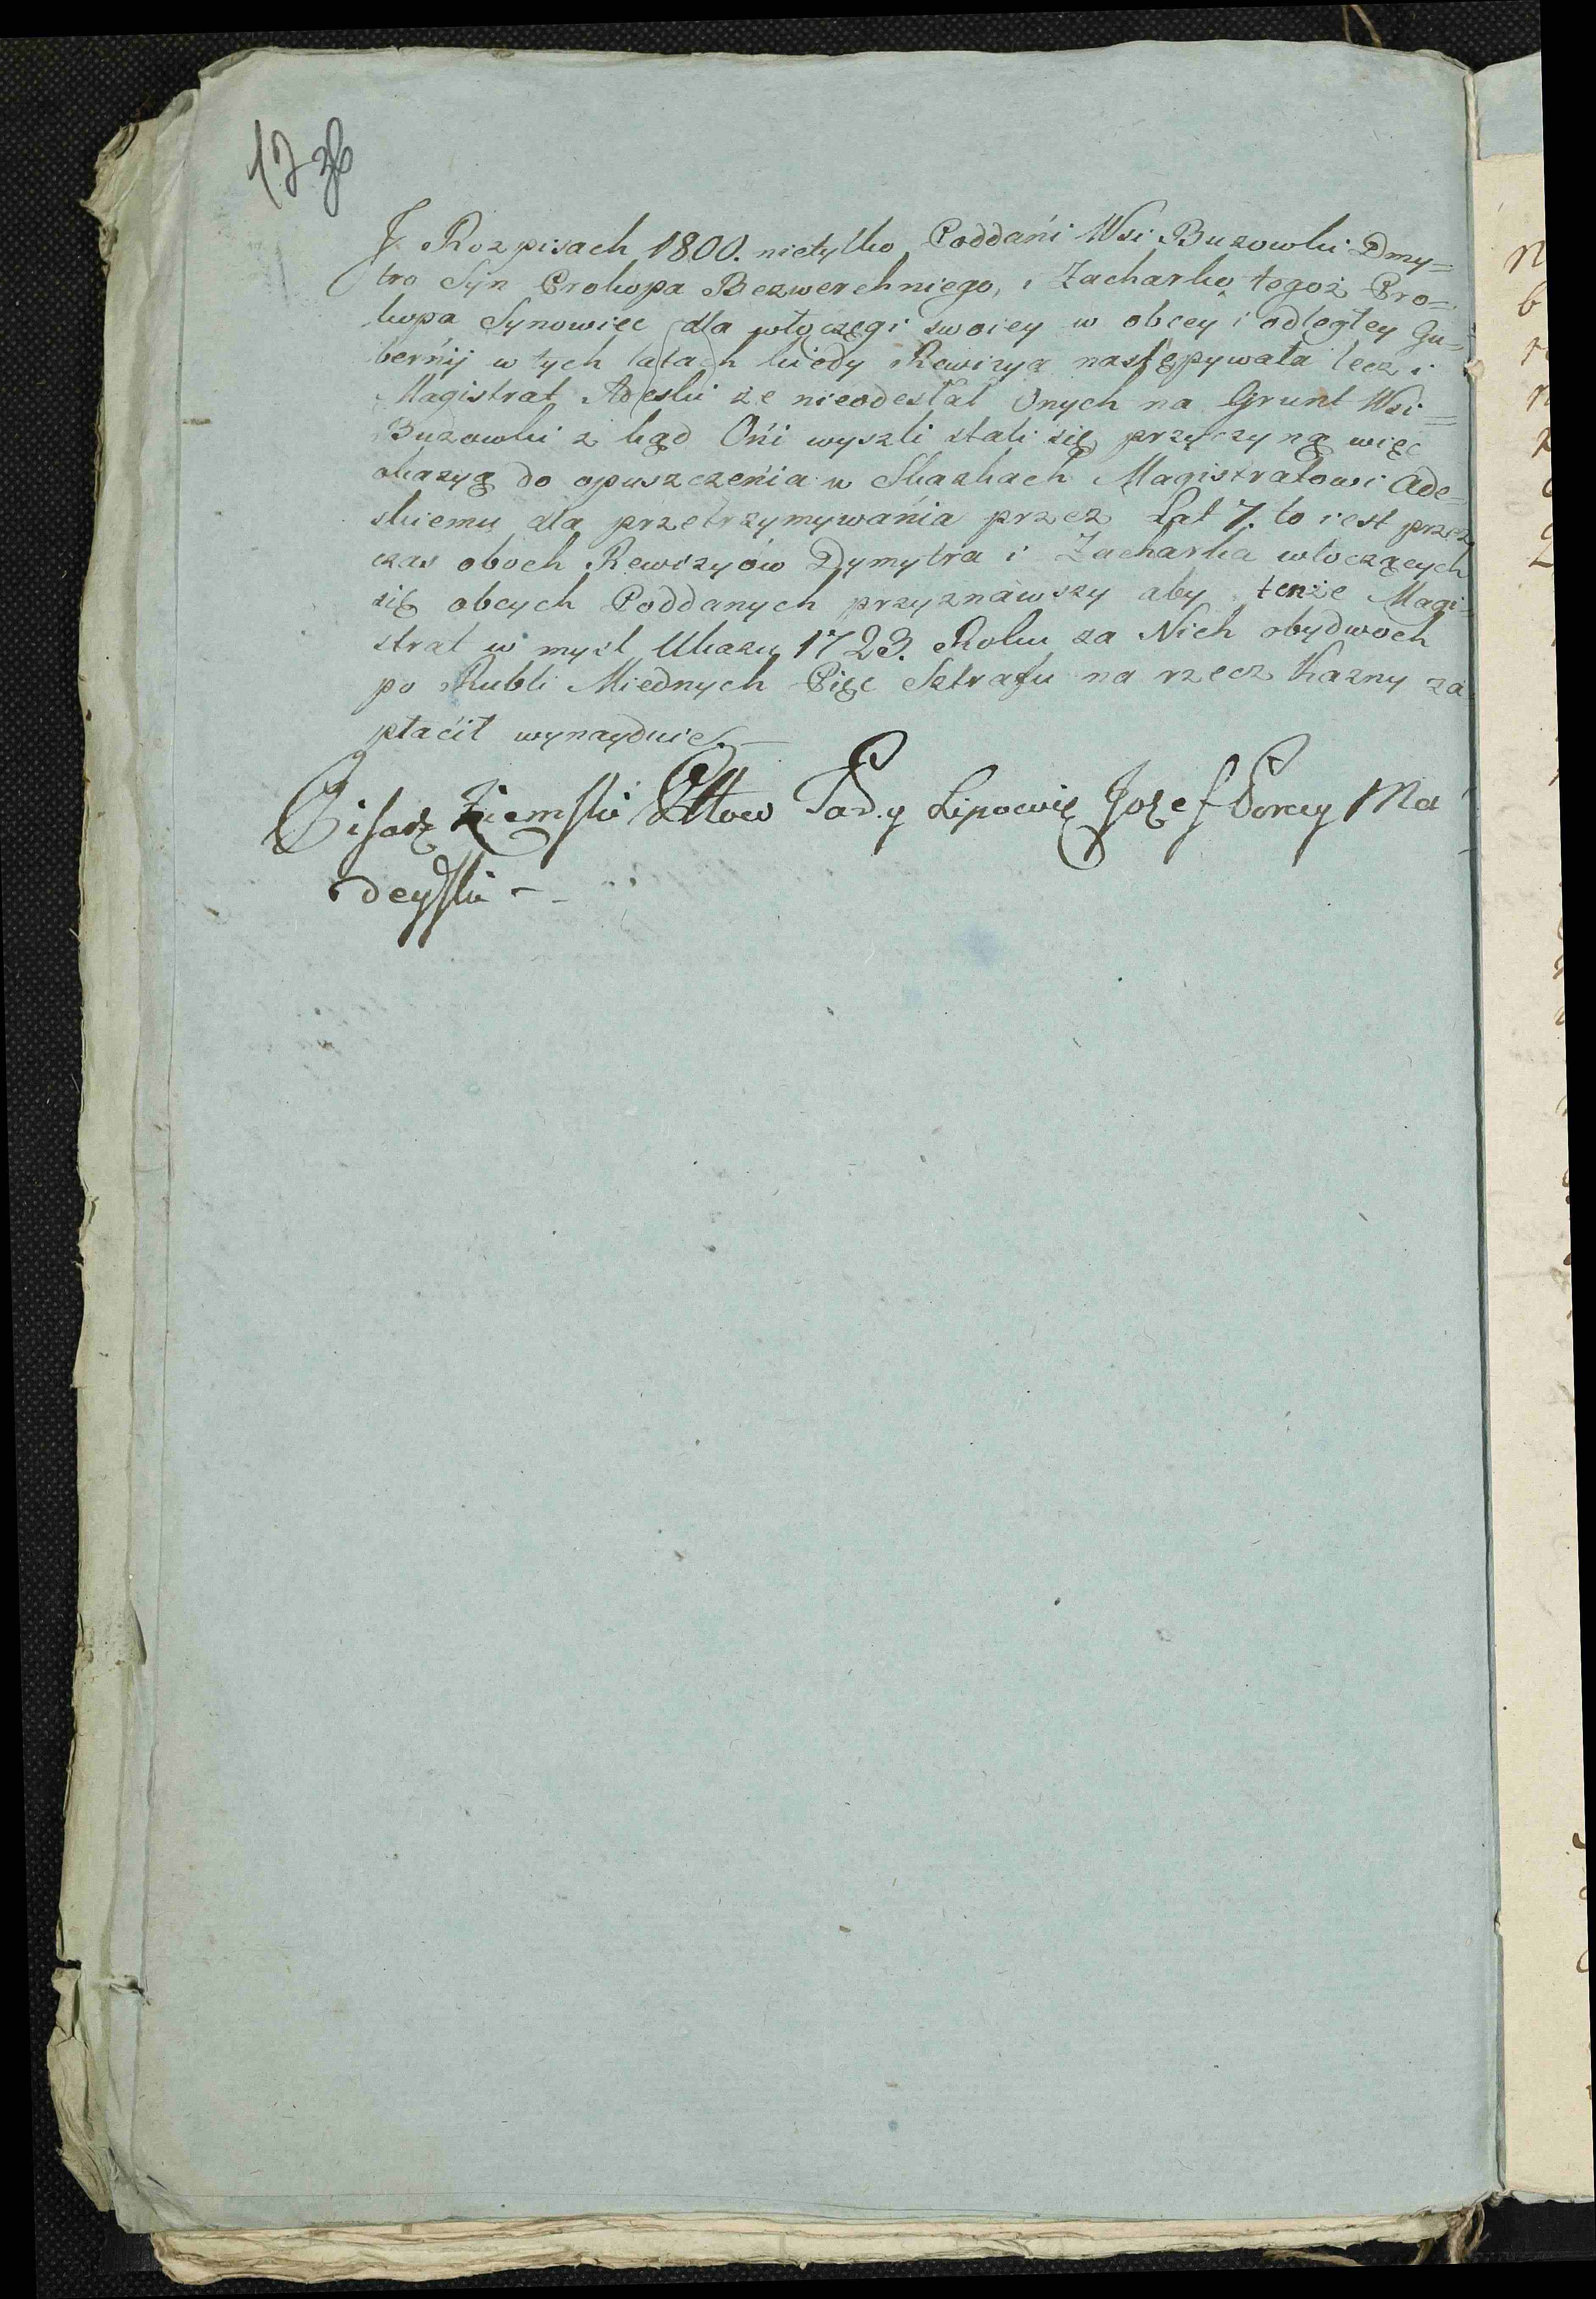 17 зв
J Rozpisach 1800. nietylko Poddańi Wsi Buzowki Dmy=
tro Syn Prokopa Bezwerchniego, i Zacharko tegoż Pro=
kopa Synowiec dla włoczęgi swoiey w obcey i odległey Gu=
bernij w tych latach kiedy Rewizya następywała lecz i
Magistrat Adeski że nieodesłał Onych na Grunt Wsi=
Buzowki z kąd Ońi wyszli stali się przyczyną więc
okazyą do opuszczeńia w Skazkach Magistratowi Ade=
skiemu dla przetrzymywańia przez Lat 7. to iest przez
czas oboch Rewizyów Dymytra i Zacharka włoczących
się obcych Poddanych przyznawszy aby tenże Magi=
strat w mysl Ukazu 1723. Roku za Nich obydwoch
po Rubli Miednych Pięc Sztrafu na rzecz Kazny za
płaćił wynayduie.—
Pisarz Ziemski Pttow Lipowie Jozef Poray Ma
deyski —